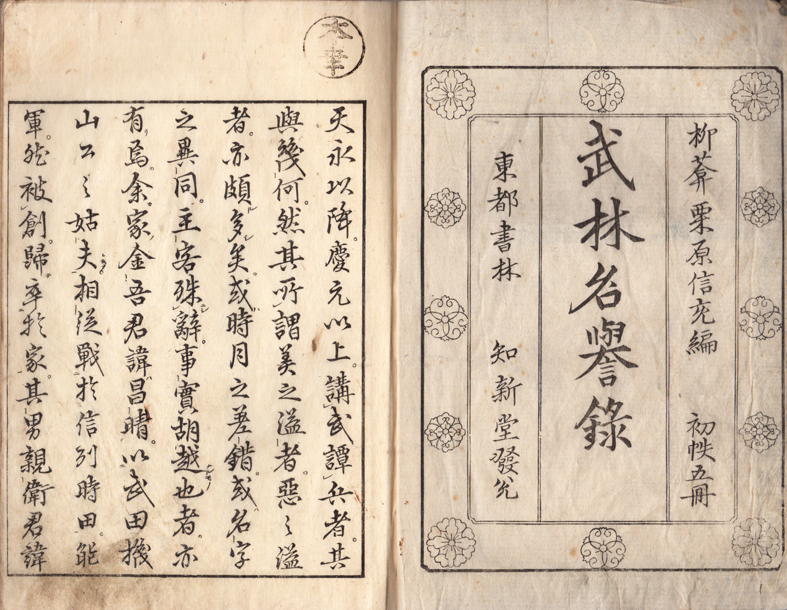 柳菴栗原信充編 初帙五冊
武林名譽錄
東都書林 知新堂發兌
天永以降慶元以上講武譚兵者其
與幾何然其所謂美之溢者惡之溢
者亦頗多矣或時月之差錯或名字
之異同主客殊辭事實胡越也者亦
有焉余家金吾君諱昌晴以武田
山公之姑夫相從戰於信列時田能
軍然被創歸卒於家其男親衛君諱